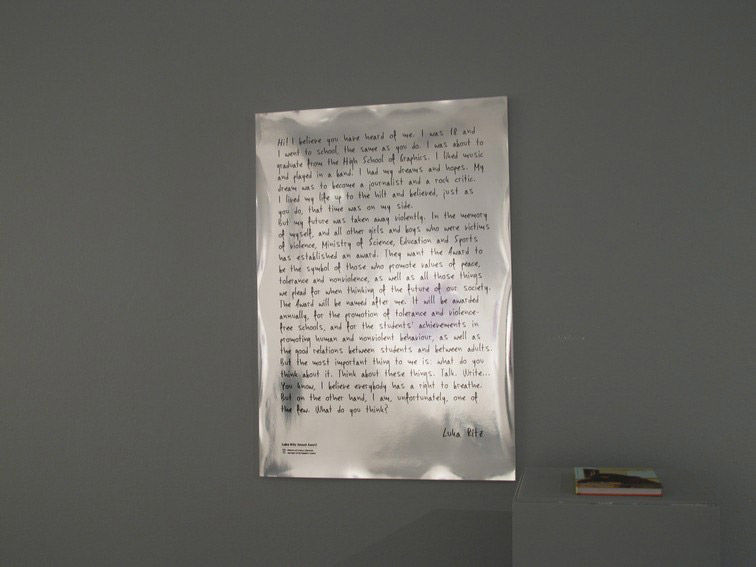 Hi! I believe you have heard of me. I was 18 and
I went to school, the same as you do. I was about to
graduate from the High School of Graphics. I liked music
and played in a band. I had my dreams and hopes. My
dream was to become a journalist and a rock critic.
I lived my life up to the hilt and believed, just as
you do, that time was on my side.
But my future was taken away violently. In the memory
of myself, and all other girls and boys who were victims
of violence, Ministry of Science, Education and Sports
has established an award. They want the Award to
be the symbol of those who promote values of peace,
tolerance and nonviolence, as well as all those things
we plead for when thinking of the future of our society.
The Award will be named after me. It will be awarded
annually, for the promotion of tolerance and violence-
free schools, and for the students' achievements in
promoting human and nonviolent behaviour, as well as
the good relations between students and between adults.
But the most important thing to me is: what do you
think about it. Think about these things. Talk. Write...
You know, I believe everybody has a right to breathe.
But on the other hand, I am, unfortunately, one of
the few. What do you think?
Luka Ritz
Luka Ritz Annual Award